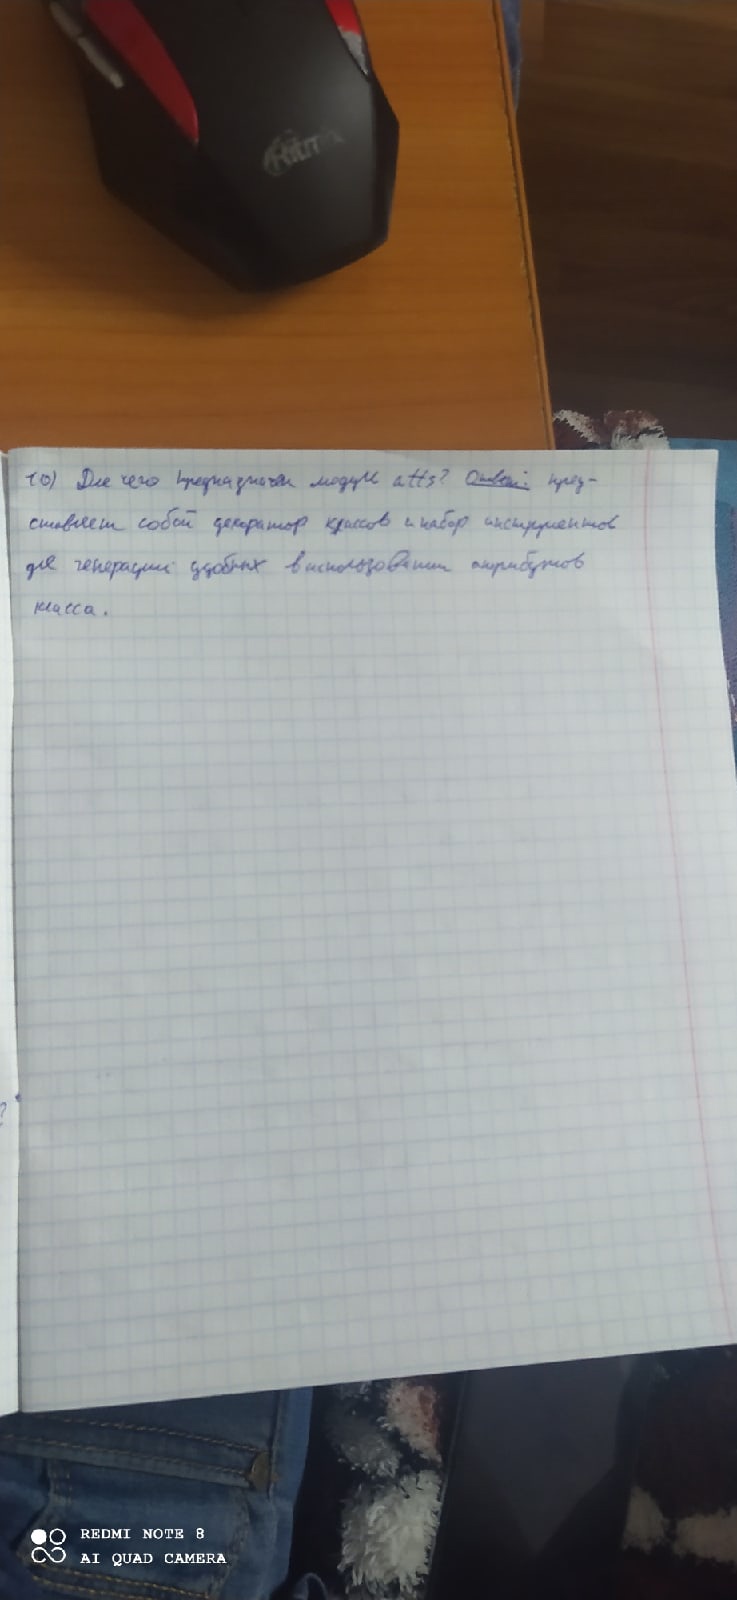 Ritmix
10) Для чего предназначен модуль attrs? Ответ: пред-
ставляет собой декоратор классов и набор инструментов
для генерации удобных в использовании атрибутов
класса.
?
REDMI NOTE 8
AI QUAD CAMERA